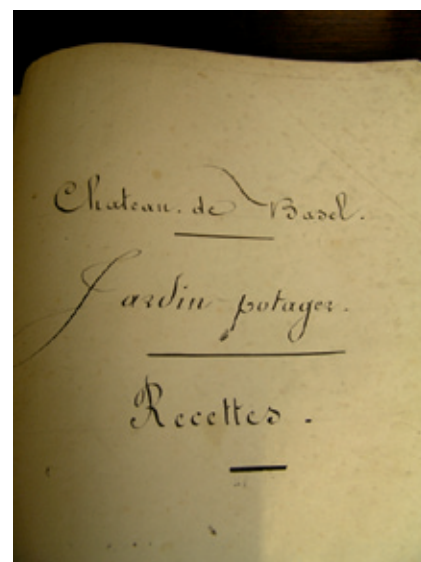 Chateau. de Basel.
Jardin potager.
Recettes.